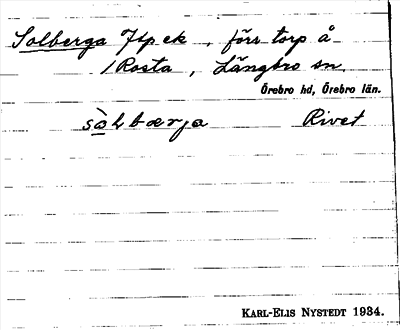 Solberga Jsp ek, förr torp å
1 Rosta, Längbro sn.
Örebro hd, Örebro län.
sòlbærja Rivet
KARL-ELIS NYSTEDT 1934.